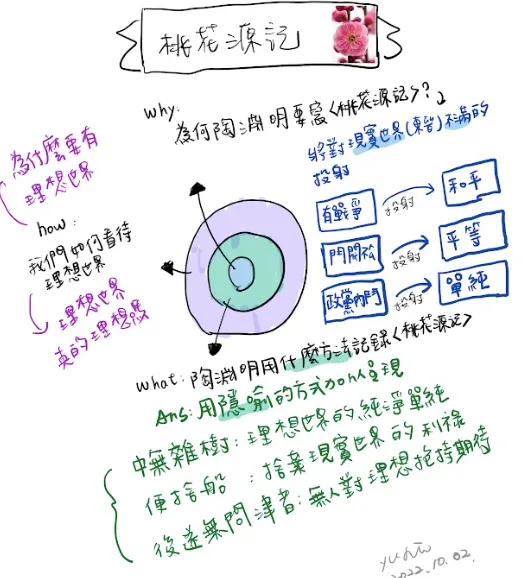 桃花源記
why:
為何陶淵明要寫〈桃花源記〉?
將對現實世界(東晉)不滿的
投射
有戰爭 投射 和平
門閥 投射 平等
政黨內鬥 投射 單純
為什麼要有
理想世界
how:
我們如何看待
理想世界
理想世界
真的理想嗎
what: 陶淵明用什麼方法記錄〈桃花源記〉
Ans: 用隱喻的方式加以呈現
中無雜樹: 理想世界的純淨單純
便捨船 : 捨棄現實世界的利祿
後遂無問津者: 無人對理想抱持期待
2022.10.02.